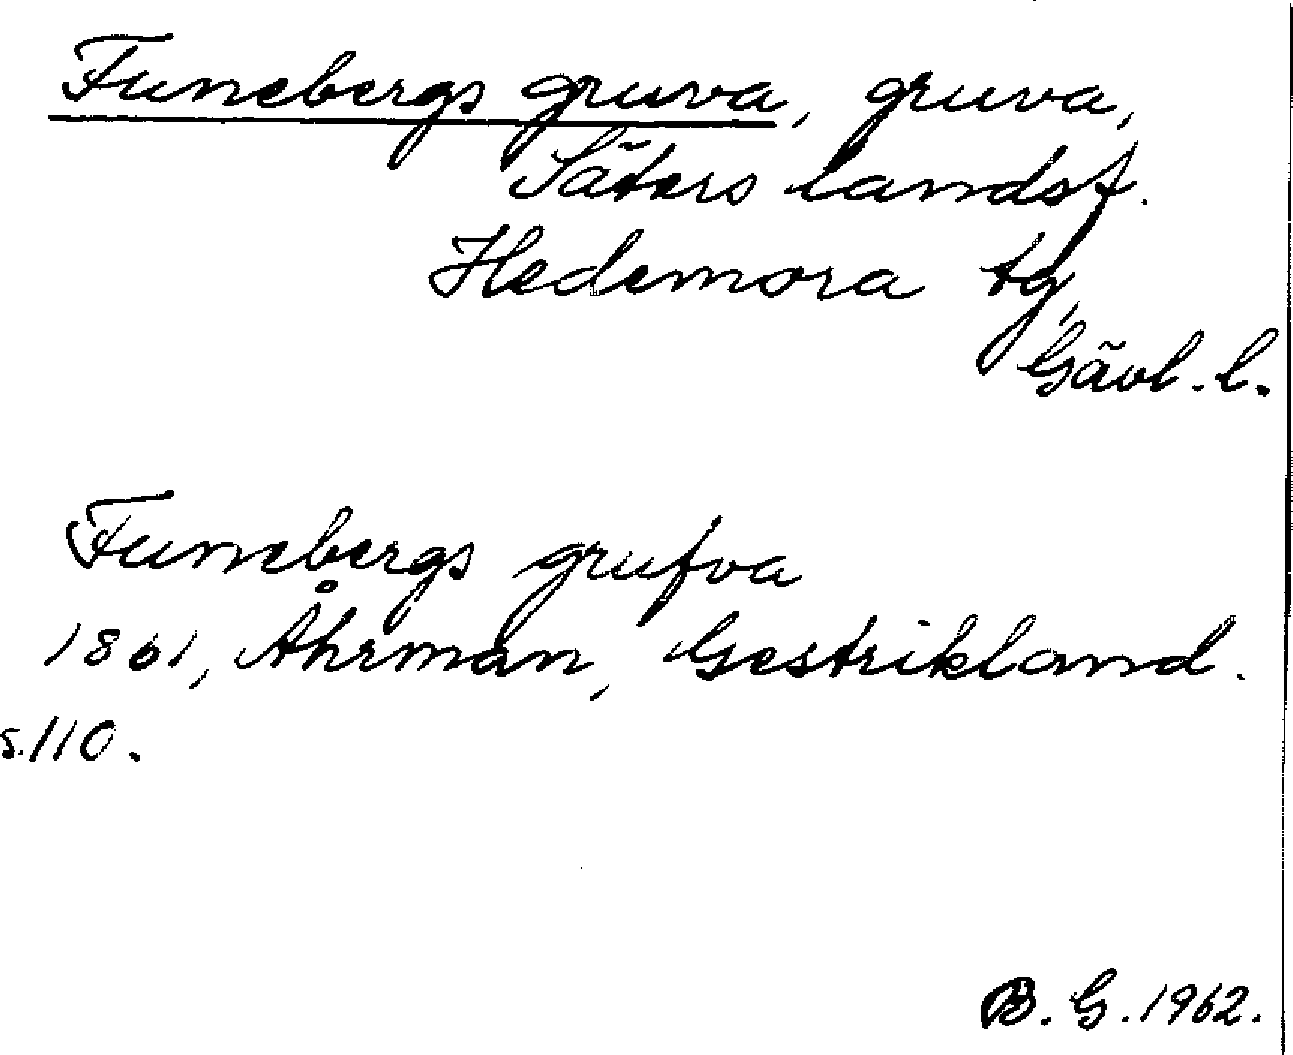 Funebergs gruva, gruva,
Säters landsf.
Hedemora tg,
Gävl. l.
Funebergs grufva
1861, Åhrman, Gestrikland.
s. 110.
B. G. 1962.